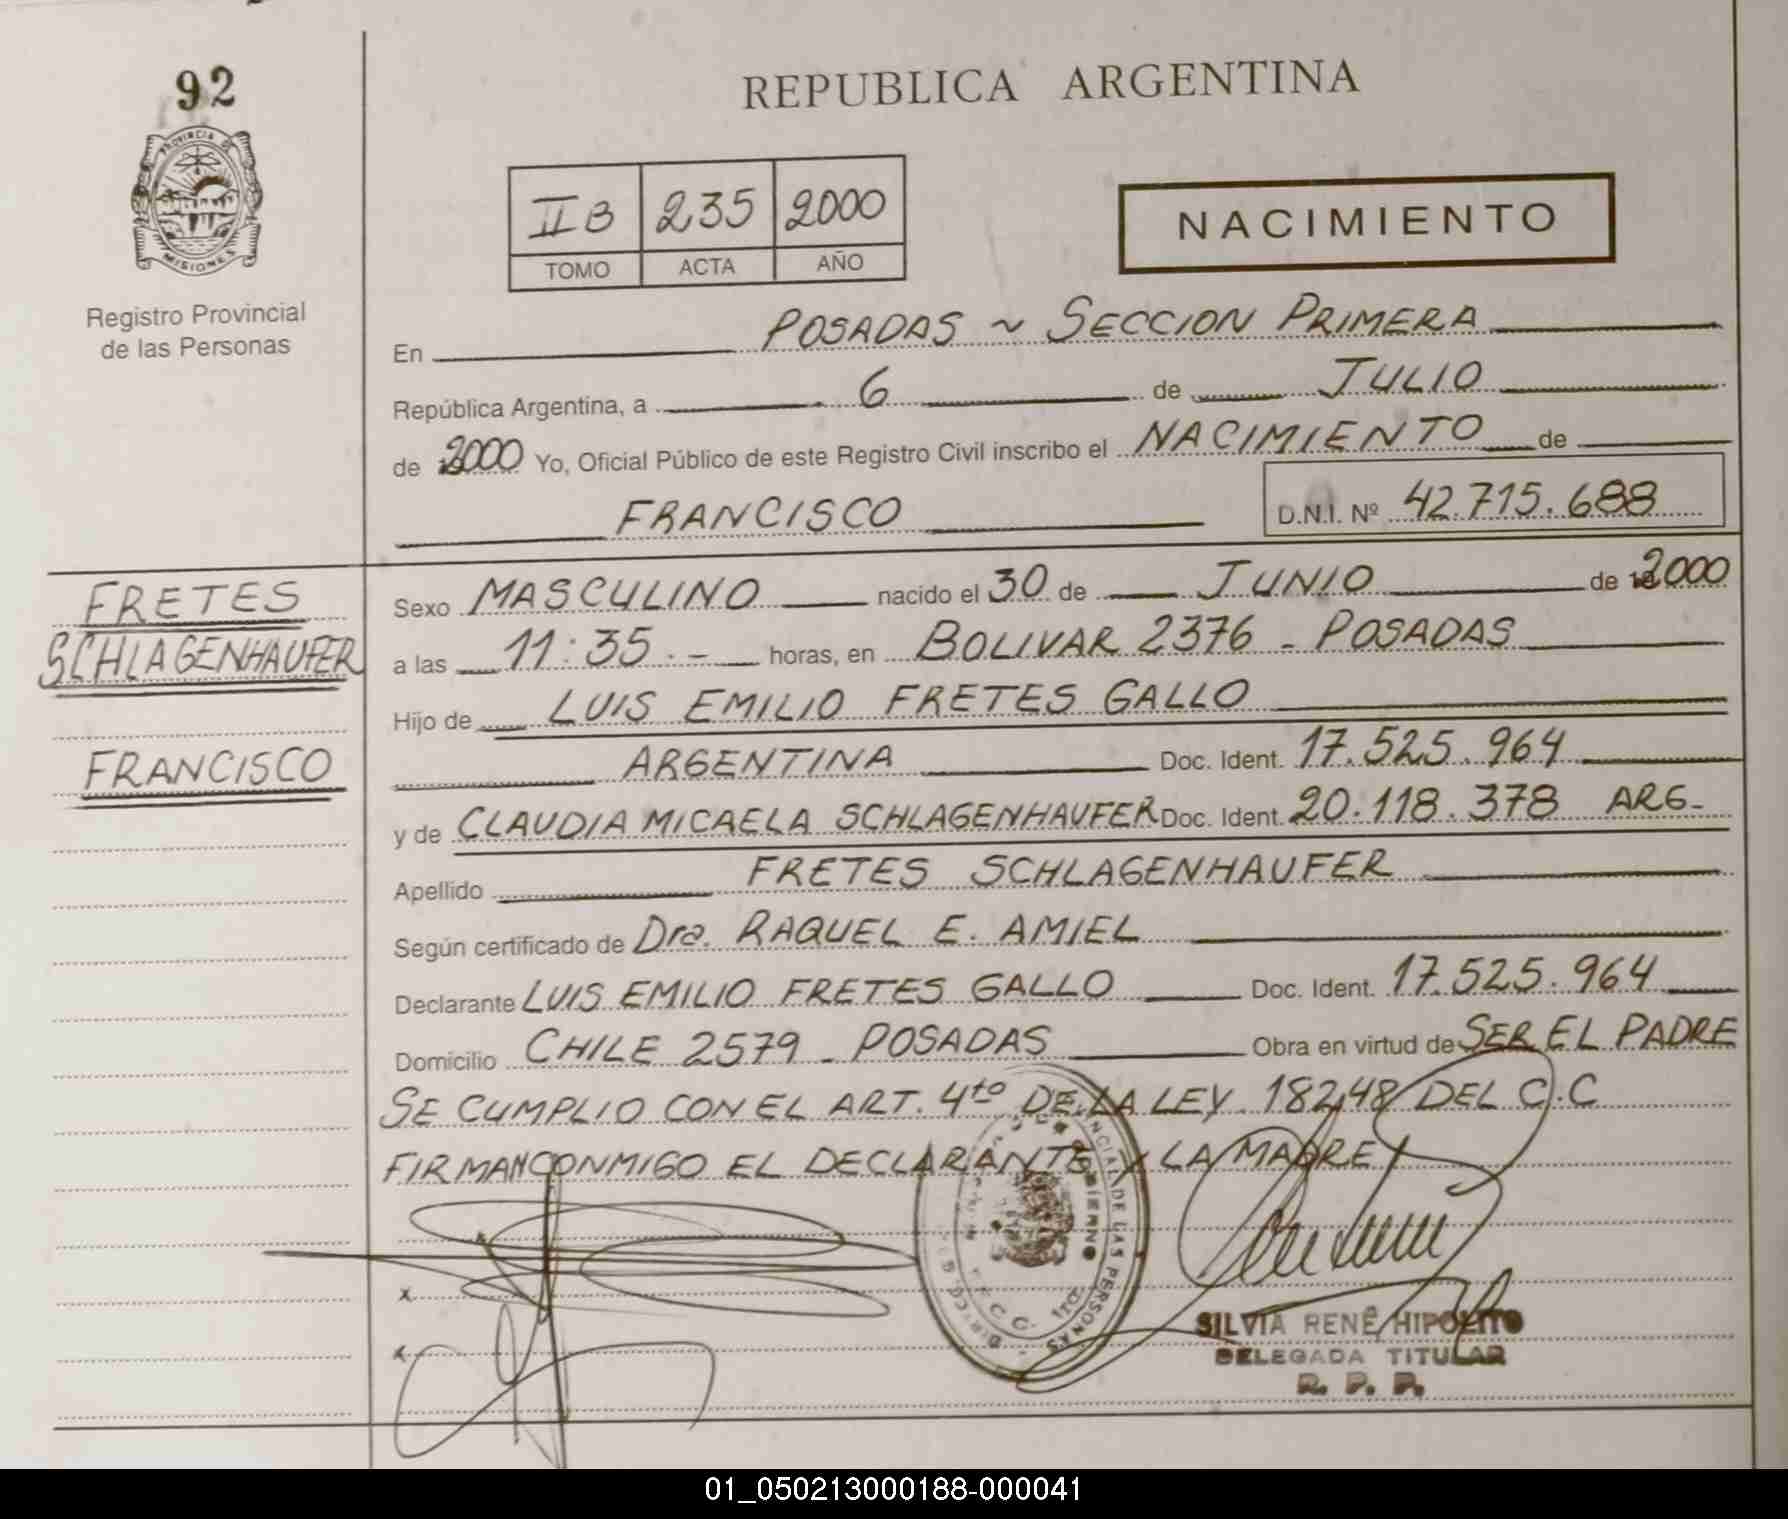 92
PROVINCIA DE
MISIONES
Registro Provincial
de las Personas
REPUBLICA ARGENTINA
II B 235 2000
TOMO ACTA AÑO
NACIMIENTO
En POSADAS ~ SECCION PRIMERA
República Argentina, a 6 de JULIO
de 2000 Yo, Oficial Público de este Registro Civil inscribo el NACIMIENTO de
FRANCISCO D.N.I. Nº 42.715.688
FRETES
SCHLAGENHAUFER
FRANCISCO
Sexo MASCULINO nacido el 30 de JUNIO de 2000
a las 11:35.- horas, en BOLIVAR 2376 - POSADAS
Hijo de LUIS EMILIO FRETES GALLO
ARGENTINA Doc. Ident. 17.525.964
y de CLAUDIA MICAELA SCHLAGENHAUFER Doc. Ident. 20.118.378 ARG-
Apellido FRETES SCHLAGENHAUFER
Según certificado de Dra. RAQUEL E. AMIEL
Declarante LUIS EMILIO FRETES GALLO Doc. Ident. 17.525.964
Domicilio CHILE 2579 - POSADAS Obra en virtud de SER EL PADRE
SE CUMPLIO CON EL ART. 4to DE LA LEY 18248 DEL C.C
FIRMAN CONMIGO EL DECLARANTE Y LA MADRE
DE LAS PERSONAS
SILVIA RENÊ HIPOLITO
DELEGADA TITULAR
R. P. P.
01_050213000188-000041